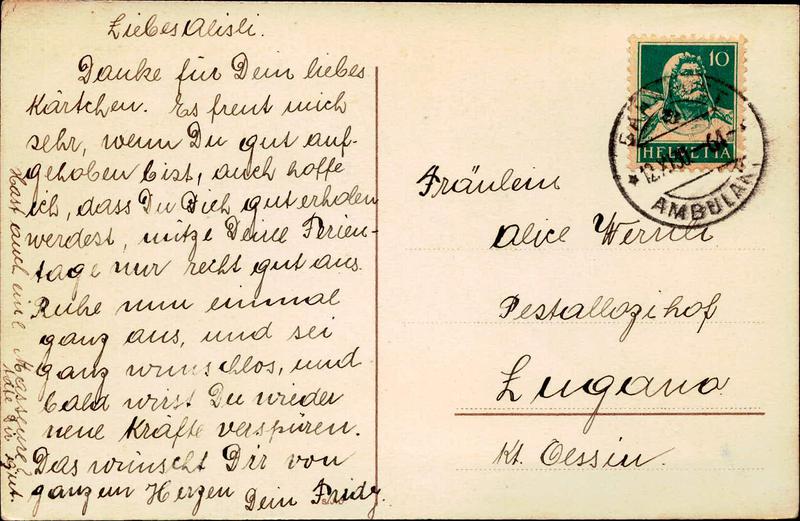 Liebes Alisli.
Danke für Dein liebes
Kärtchen. Es freut mich
sehr, wenn Du gut auf-
gehoben bist, auch hoffe
ich, dass Du Dich gut erholen
werdest, nütze Deine Ferien-
tage nur recht gut aus.
Ruhe nun einmal
ganz aus, und sei
ganz wunschlos, und
bald wirst Du wieder
neue Kräfte verspüren.
Das wünscht Dir von
ganzem Herzen Dein
Hast auch eine
gut.
10
HELVETIA
AMBULANT
Fräulein
Alice Wernli
Pestallozihof
Lugano
Kt. Tessin.